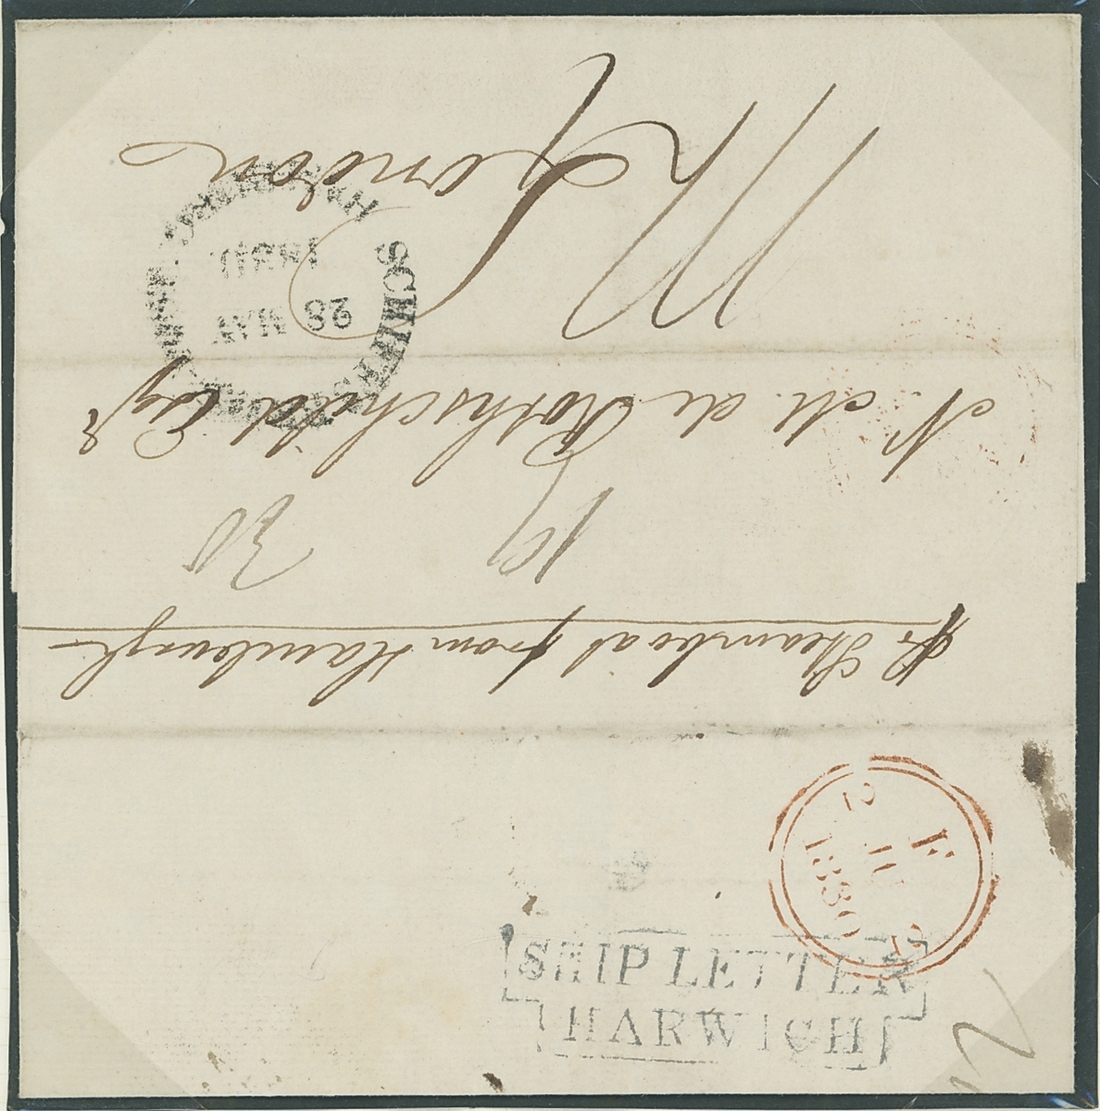 pr Steamboat from Hambourgh
19
30
N. M. de Rothschild Esqr
London
SCHIFFS
HAMBURG
28 MAY
1830
F
2 IU
1830
SHIP LETTER
HARWICH